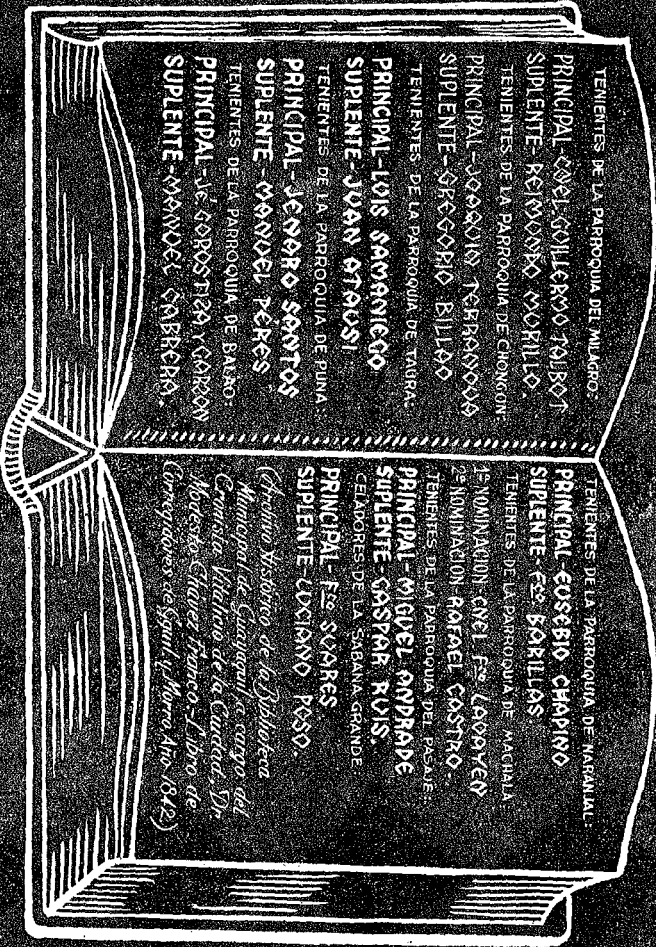 TENIENTES DE LA PARROQUIA DEL MILAGRO:
PRINCIPAL-CNEL. GUILLERMO TALBOT
SUPLENTE-REIMUNDO MORILLO.
TENIENTES DE LA PARROQUIA DE CHONGON:
PRINCIPAL-JOAQUIN TERRANOVA
SUPLENTE-GREGORIO BILLAO
TENIENTES DE LA PARROQUIA DE TAURA:
PRINCIPAL-LUIS SAMANIEGO
SUPLENTE-JUAN ATAUSI
TENIENTES DE LA PARROQUIA DE PUNA:
PRINCIPAL-JENARO SANTOS
SUPLENTE-MANUEL PERES
TENIENTES DE LA PARROQUIA DE BALAO:
PRINCIPAL-JE. GOROSTIZA Y GARON
SUPLENTE-MANUEL CABRERA.
TENIENTES DE LA PARROQUIA DE NARANJAL:
PRINCIPAL-EUSEBIO CHAPINO
SUPLENTE-Fco BARILLAS.
TENIENTES DE LA PARROQUIA DE MACHALA:
1ª NOMINACION CNEL. Fco LAVAYEN
2ª NOMINACION-RAFAEL CASTRO-.
TENIENTES DE LA PARROQUIA DEL PASAJE:
PRINCIPAL-MIGUEL ANDRADE
SUPLENTE-GASPAR RUIS.
CELADORES DE LA SABANA GRANDE:
PRINCIPAL-Fco SUARES
SUPLENTE-LUCIANO POSO.
(Archivo Histórico de la Biblioteca
Municipal de Guayaquil a cargo del
Cronista Vitalicio de la Ciudad, Dr.
Modesto Chávez Franco-Libro de
Corregidores de Gquil. y Marzo Año 1842)